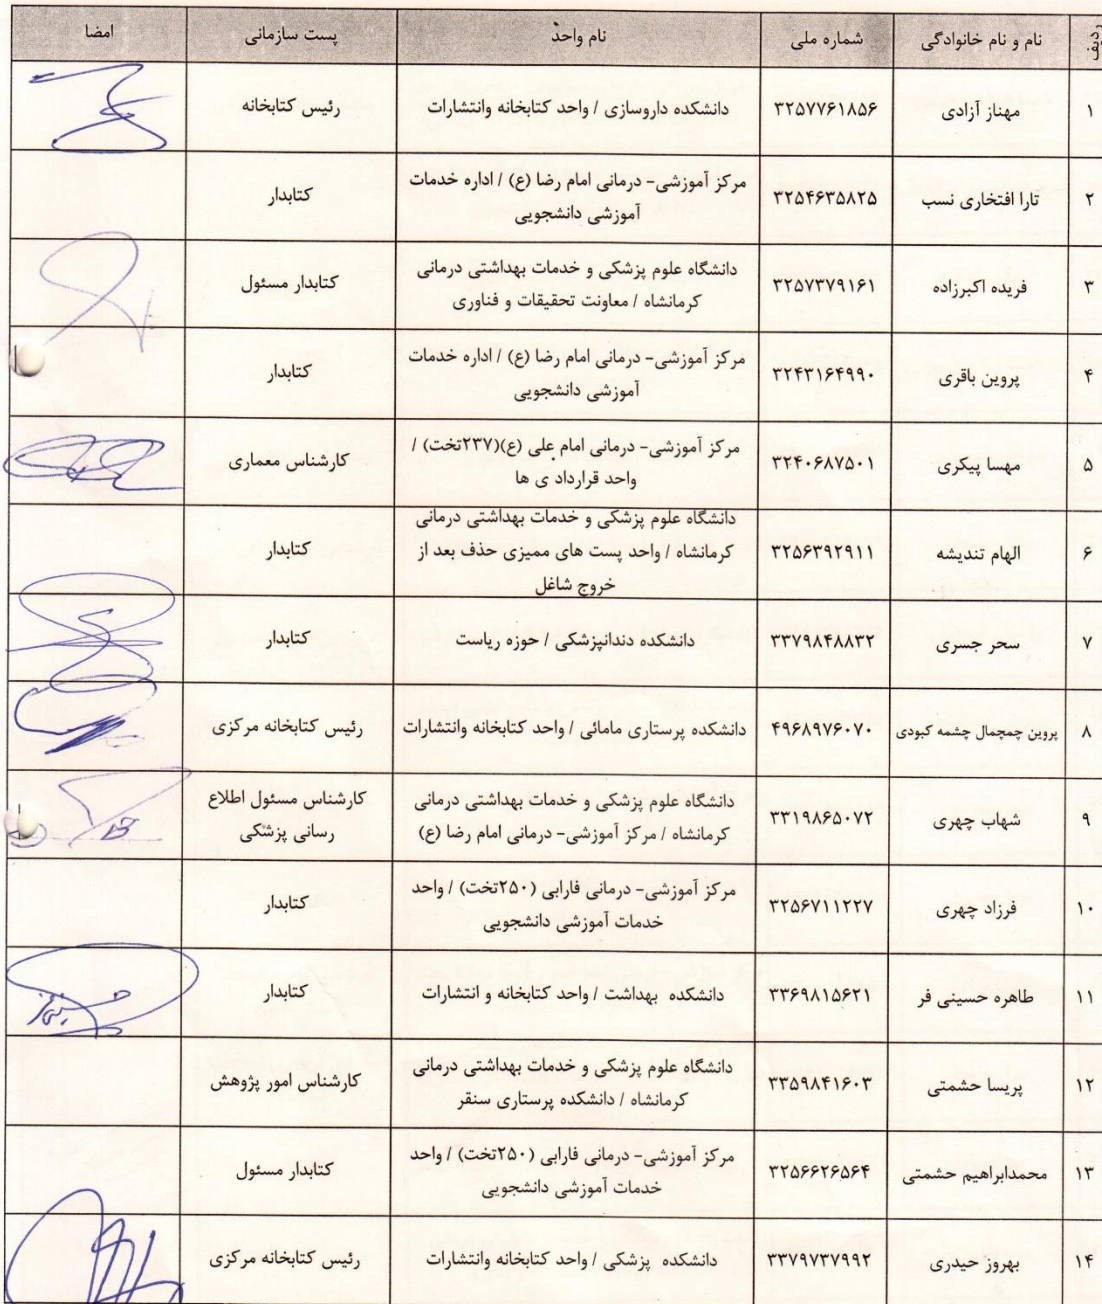 ردیف نام و نام خانوادگی شماره ملی نام واحد پست سازمانی امضا
۱ مهناز آزادی ۳۲۵۷۷۶۱۸۵۶ دانشکده داروسازی / واحد کتابخانه وانتشارات رئیس کتابخانه
۲ تارا افتخاری نسب ۳۲۵۴۶۳۵۸۲۵ مرکز آموزشی- درمانی امام رضا (ع) / اداره خدمات
آموزشی دانشجویی کتابدار
۳ فریده اکبرزاده ۳۲۵۷۳۷۹۱۶۱ دانشگاه علوم پزشکی و خدمات بهداشتی درمانی
کرمانشاه / معاونت تحقیقات و فناوری کتابدار مسئول
۴ پروین باقری ۳۲۴۳۱۶۴۹۹۰ مرکز آموزشی- درمانی امام رضا (ع) / اداره خدمات
آموزشی دانشجویی کتابدار
۵ مهسا پیکری ۳۲۴۰۶۸۷۵۰۱ مرکز آموزشی- درمانی امام علی (ع)(۲۳۷تخت) /
واحد قرارداد ی ها کارشناس معماری
۶ الهام تندیشه ۳۲۵۶۳۹۲۹۱۱ دانشگاه علوم پزشکی و خدمات بهداشتی درمانی
کرمانشاه / واحد پست های ممیزی حذف بعد از
خروج شاغل کتابدار
۷ سحر جسری ۳۳۷۹۸۴۸۸۳۲ دانشکده دندانپزشکی / حوزه ریاست کتابدار
۸ پروین چمچمال چشمه کبودی ۴۹۶۸۹۷۶۰۷۰ دانشکده پرستاری مامائی / واحد کتابخانه وانتشارات رئیس کتابخانه مرکزی
۹ شهاب چهری ۳۳۱۹۸۶۵۰۷۲ دانشگاه علوم پزشکی و خدمات بهداشتی درمانی
کرمانشاه / مرکز آموزشی- درمانی امام رضا (ع) کارشناس مسئول اطلاع
رسانی پزشکی
۱۰ فرزاد چهری ۳۲۵۶۷۱۱۲۲۷ مرکز آموزشی- درمانی فارابی (۲۵۰تخت) / واحد
خدمات آموزشی دانشجویی کتابدار
۱۱ طاهره حسینی فر ۳۳۶۹۸۱۵۶۲۱ دانشکده بهداشت / واحد کتابخانه و انتشارات کتابدار
۱۲ پریسا حشمتی ۳۳۵۹۸۴۱۶۰۳ دانشگاه علوم پزشکی و خدمات بهداشتی درمانی
کرمانشاه / دانشکده پرستاری سنقر کارشناس امور پژوهش
۱۳ محمدابراهیم حشمتی ۳۲۵۶۶۲۶۵۶۴ مرکز آموزشی- درمانی فارابی (۲۵۰تخت) / واحد
خدمات آموزشی دانشجویی کتابدار مسئول
۱۴ بهروز حیدری ۳۳۷۹۷۳۷۹۹۲ دانشکده پزشکی / واحد کتابخانه وانتشارات رئیس کتابخانه مرکزی